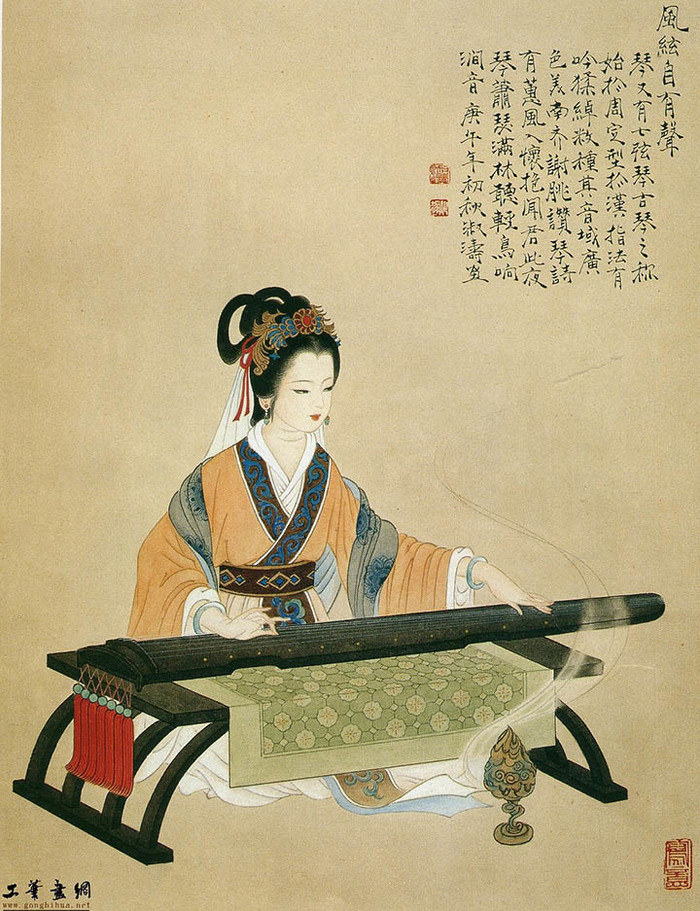 風絃自有聲
琴又有七弦琴古琴之称
始於周定型於漢指法有
吟揉綽数種其音域廣
色美南齐謝朓讚琴詩
有蕙風入懷抱聞君此夜
琴蕭瑟滿林聽輕鳥响
澗音庚午年初秋淑濤画
工筆畫網
www.gongbihua.net